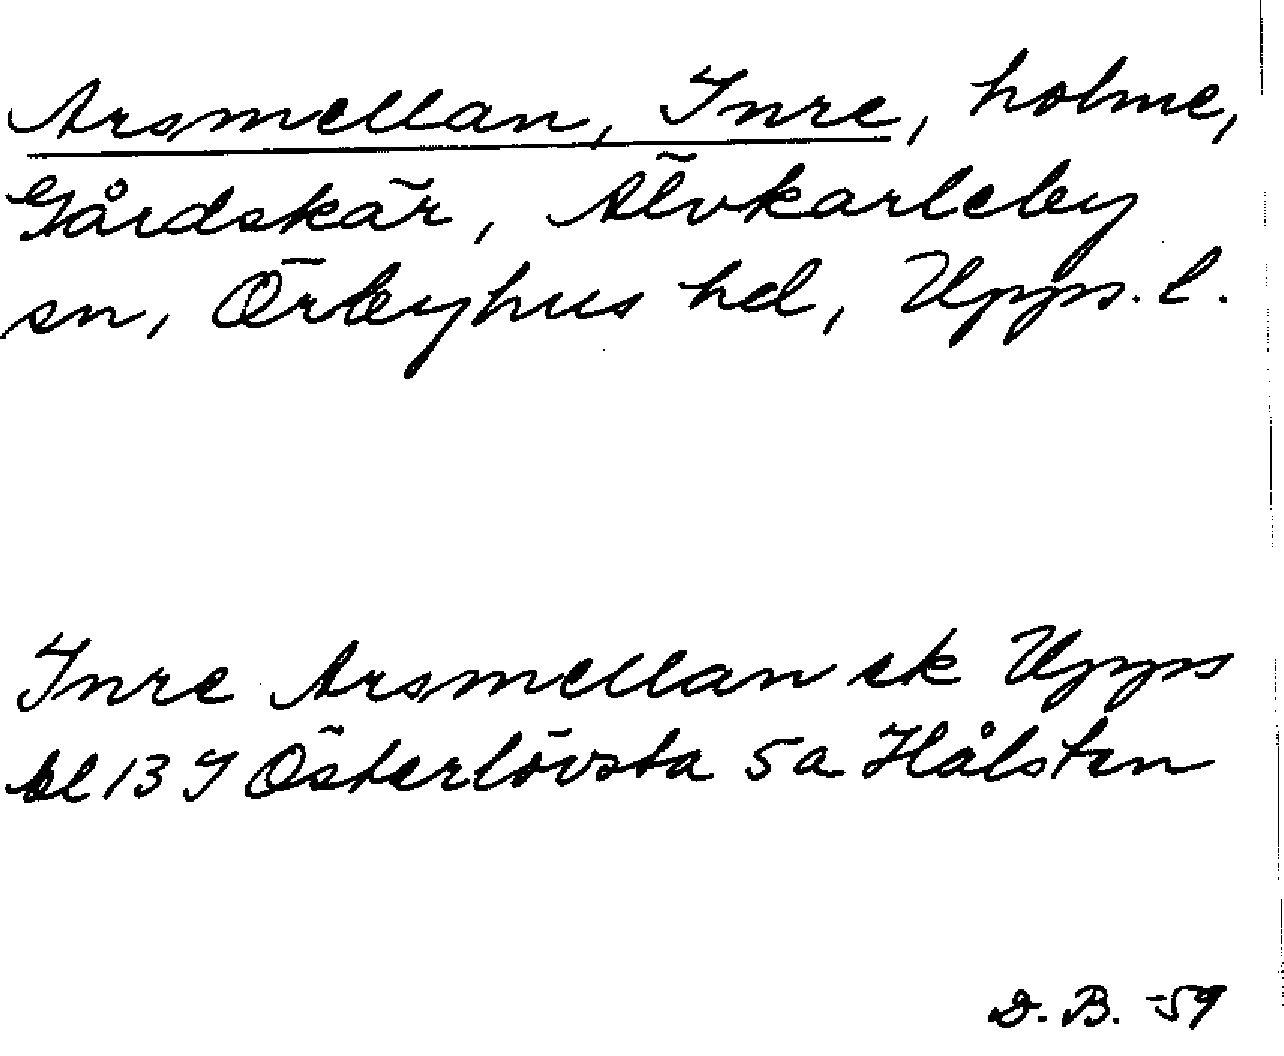 Arsmellan, Inre, holme,
Gårdskär, Älvkarleby
sn, Örbyhus hd, Upps. l.
Inre Arsmellan ek Upps
bl 13 I Österlövsta 5a Hålsten
D. B. -59